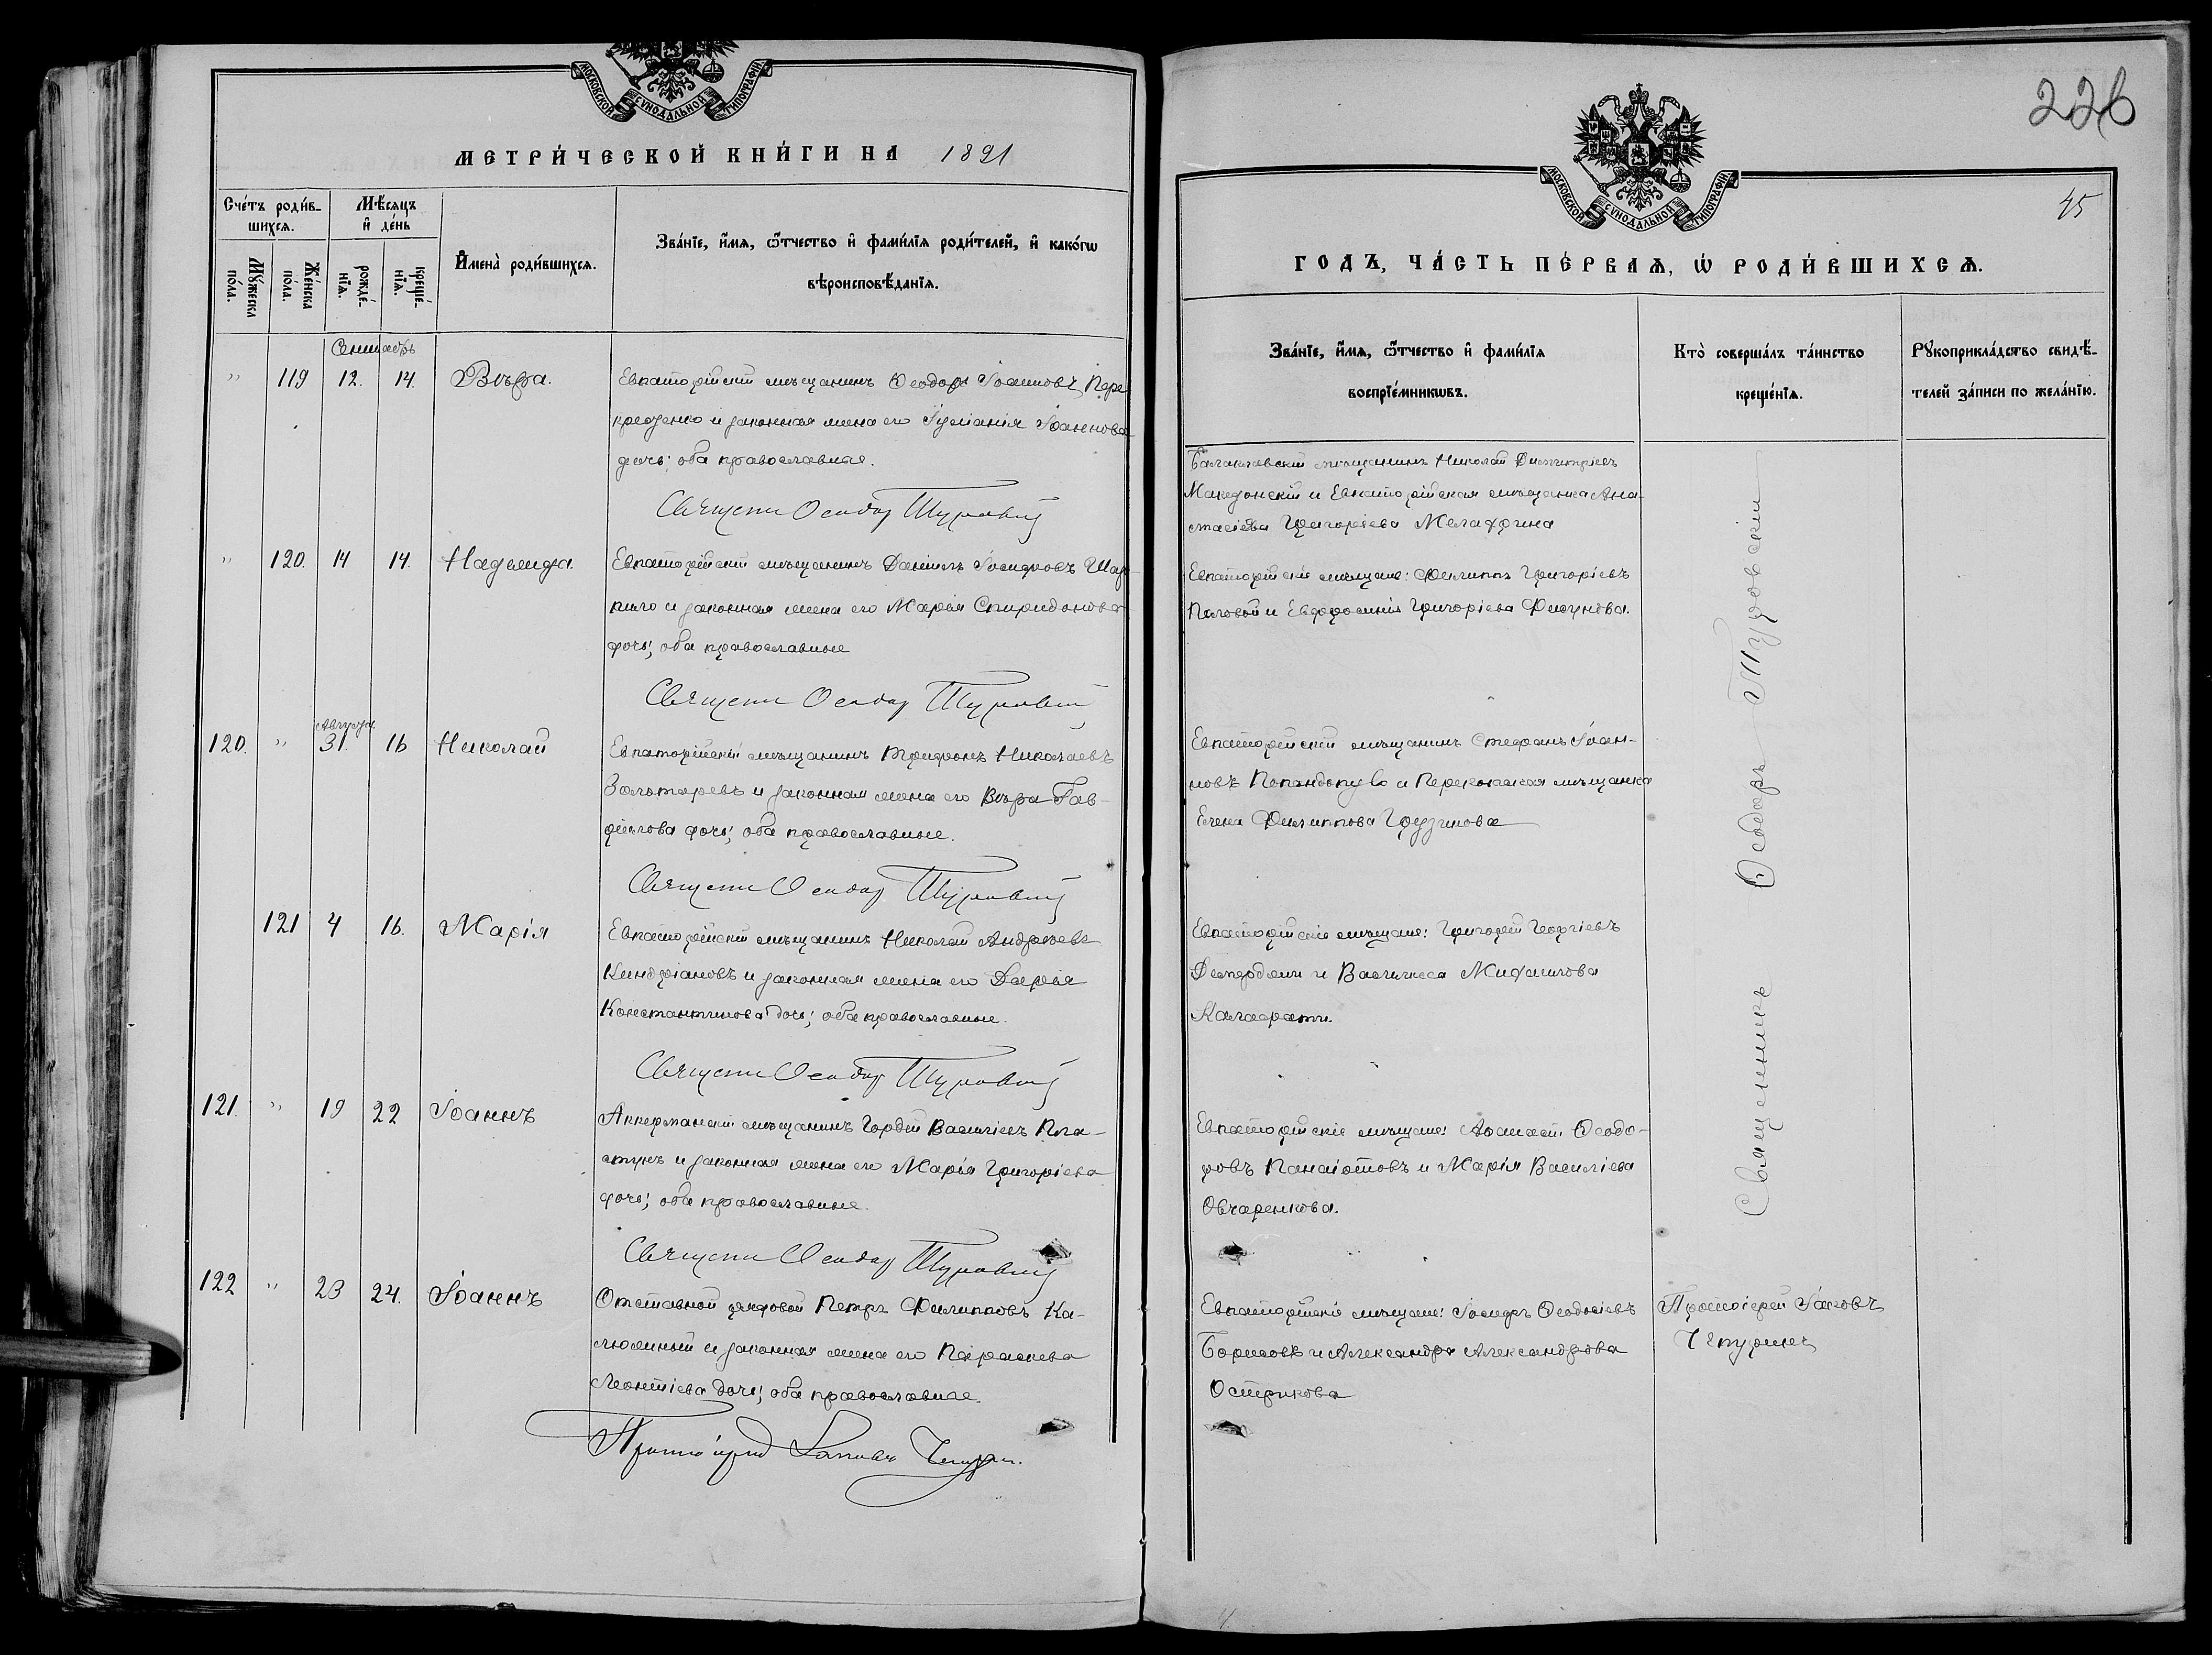 МОСКОВСКОЙ СѴНОДАЛЬНОЙ ТИПОГРАФІИ
МЕТРИ́ЧЕСКОЙ КНИ́ГИ НА 1891
Сче́тъ роди́в-
шихсѧ.
Мѣ́сѧцъ
и҆ де́нь
И҆мена̀ роди́вшихсѧ.
Зва́нїе, и҆́мѧ, ѻ҆́тчество и҆ фами́лїѧ роди́телей, и҆ како́гѡ
вѣроисповѣ́данїѧ.
Мꙋ́жеска
по́ла.
Же́нска
по́ла.
рожде́-
нїѧ.
креще́-
нїѧ.
Сентябрь
" 119 12. 14. Вѣра.
Евпаторійскій мѣщанинъ Ѳеодоръ Іоанновъ Пере
крестенко и законная жена его Іуліанія Іоаннова
дочь; оба православные.
Священ Ѳеодор Туровскій
" 120. 14 14. Надежда.
Евпаторійскій мѣщанинъ Даніилъ Іосифовъ Шар
пило и законная жена его Марія Спиридонова
дочь; оба православные
Священ Ѳеодор Туровскій
Августа
120. " 31. 16 Николай
Евпаторійскій мѣщанинъ Трифонъ Николаевъ
Зольтаревъ и законная жена его Вѣра Гав-
ріилова дочь; оба православные.
Священ Ѳеодор Туровскій
121 4 16. Марія
Евпаторійскій мѣщанинъ Николай Андреевъ
Киндріановъ и законная жена его Дарія
Константинова дочь; оба православные.
Священ Ѳеодор Туровскій
121. " 19 22 Іоаннъ
Аккерманскій мѣщанинъ Гордій Василіевъ Пла-
стунъ и законная жена его Марія Григоріева
дочь; оба православные.
Священ Ѳеодор Туровскій
122 " 23 24. Іоаннъ
Отставной рядовой Петръ Филипповъ Ка-
люжный и законная жена его Параскева
Леонтіева дочь; оба православные.
Протоіерей Іаковъ Чепурин
226
МОСКОВСКОЙ СѴНОДАЛЬНОЙ ТИПОГРАФІИ
45
ГО́ДЪ, ЧА́СТЬ ПЕ́РВАѦ, Ѡ҆ РОДИ́ВШИХСѦ.
Зва́нїе, и҆́мѧ, ѻ҆́тчество и҆ фами́лїѧ
воспрїе́мникѡвъ.
Кто̀ соверша́лъ та́инство
креще́нїѧ.
Рꙋкоприкла́дство свидѣ́-
телей за́писи по жела́нїю.
Балаклавскій мѣщанинъ Николай Димитріевъ
Македонскій и Евпаторійская мѣщанка Ана-
стасіева Григоріева Мелахрина
Евпаторійскіе мѣщане: Филиппъ Григоріевъ
Паловой и Евфросинія Григоріева Фисунова.
Евпаторійскій мѣщанинъ Стефанъ Іоан-
новъ Попандопуло и Перекопская мѣщанка
Елена Филиппова Грузинова
Евпаторійскіе мѣщане: Григорій Георгіевъ
и Василисса Михаилова
Калафати.
Евпаторійскіе мѣщане: Ѳеодо-
ровъ Панаіотовъ и Марія Василіева
Овчаренкова.
Евпаторійскіе мѣщане: Іосифъ Ѳеодосіевъ
Борисовъ и Александра Александрова
Острикова
Священникъ Ѳеодоръ Туровскій
Протоіерей Іаковъ
Чепурин